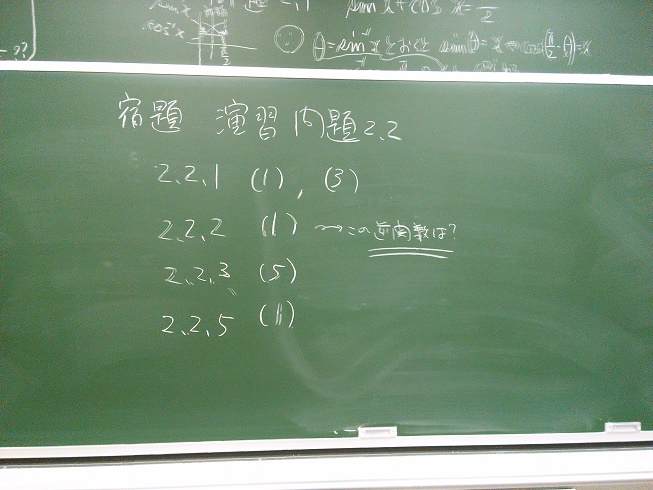 sin⁻¹x + cos⁻¹x = π/2
cos⁻¹x
π/2
θ = sin⁻¹x とおくと sinθ = x ⇔ cos(π/2 - θ) = x
??
宿題 演習問題2.2
2.2.1 (1), (3)
2.2.2 (1) 〜→この逆関数は?
2.2.3 (5)
2.2.5 (1)